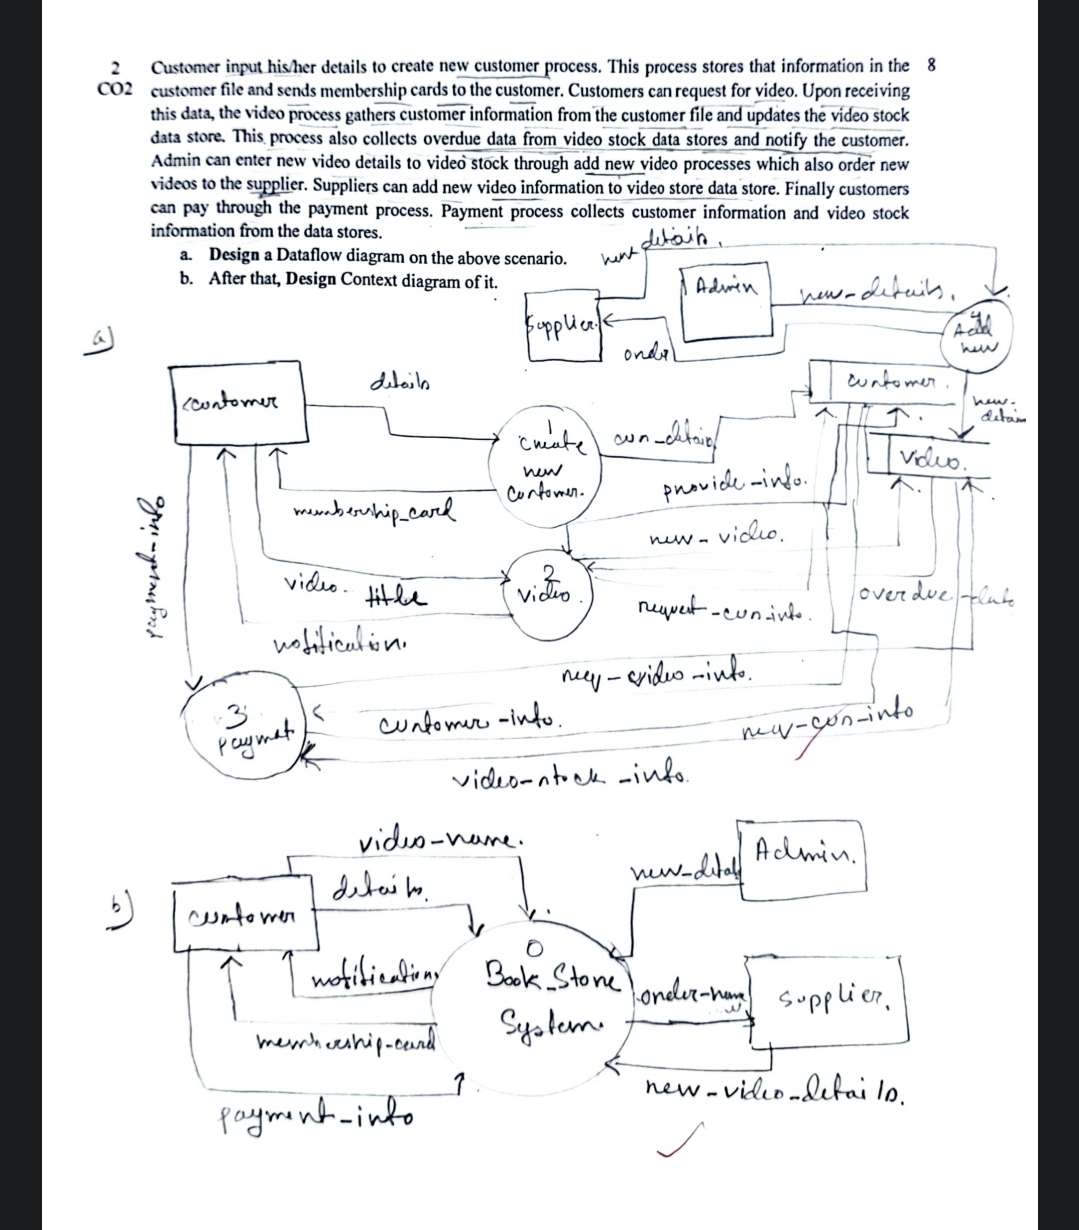 2 Customer input his/her details to create new customer process. This process stores that information in the 8
CO2 customer file and sends membership cards to the customer. Customers can request for video. Upon receiving
this data, the video process gathers customer information from the customer file and updates the video stock
data store. This process also collects overdue data from video stock data stores and notify the customer.
Admin can enter new video details to video stock through add new video processes which also order new
videos to the supplier. Suppliers can add new video information to video store data store. Finally customers
can pay through the payment process. Payment process collects customer information and video stock
information from the data stores.
a. Design a Dataflow diagram on the above scenario.
b. After that, Design Context diagram of it.
details.
Admin
new-details.
Supplier
order
4
Add
new
a)
customer
details
customer.
new-
detain
1
create
new
customer.
cus-detail
video.
provide-info.
membership_card
payment-info
new-video.
video-title
2
video.
request-cus-info.
overdue-data
notification.
req-video-info.
3
payment
customer-info.
req-cus-info
video-stock-info.
video-name.
Admin.
new-detail
b)
customer
details.
0
Book_Store
System.
notification
order-name
supplier.
membership-card
new-video-details.
payment-info